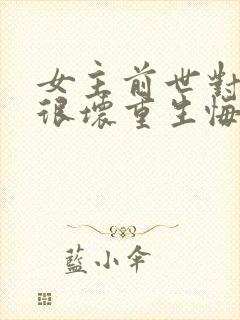 女主前世對
很壞重生悔
藍小傘